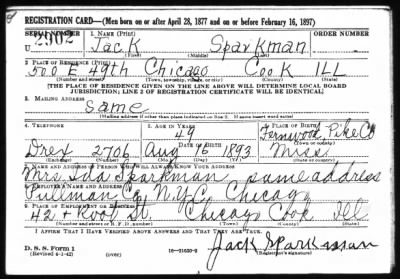 REGISTRATION CARD—(Men born on or after April 28, 1877 and on or before February 16, 1897)
SERIAL NUMBER 1. NAME (Print) ORDER NUMBER
U 2902 Jack Sparkman
(First) (Middle) (Last)
2. PLACE OF RESIDENCE (Print)
500 E 49th Chicago Cook ILL
(Number and street) (Town, township, village, or city) (County) (State)
[THE PLACE OF RESIDENCE GIVEN ON THE LINE ABOVE WILL DETERMINE LOCAL BOARD
JURISDICTION; LINE 2 OF REGISTRATION CERTIFICATE WILL BE IDENTICAL]
3. MAILING ADDRESS
Same
[Mailing address if other than place indicated on line 2. If same insert word same]
4. TELEPHONE 5. AGE IN YEARS 6. PLACE OF BIRTH
49 Fernwood Pike Co
DATE OF BIRTH (Town or county)
Drex 2706 Aug 16 1893 Miss
(Exchange) (Number) (Mo.) (Day) (Yr.) (State or country)
7. NAME AND ADDRESS OF PERSON WHO WILL ALWAYS KNOW YOUR ADDRESS
Mrs Ida Sparkman same address
8. EMPLOYER'S NAME AND ADDRESS
Pullman Co N.Y.C. Chicago
9. PLACE OF EMPLOYMENT OR BUSINESS
42 + Root St. Chicago Cook Ill
(Number and street or R. F. D. number) (Town) (County) (State)
I AFFIRM THAT I HAVE VERIFIED ABOVE ANSWERS AND THAT THEY ARE TRUE.
Jack Sparkman
D. S. S. Form 1
(Revised 4-1-42) (over) 16—21630-2 (Registrant's signature)